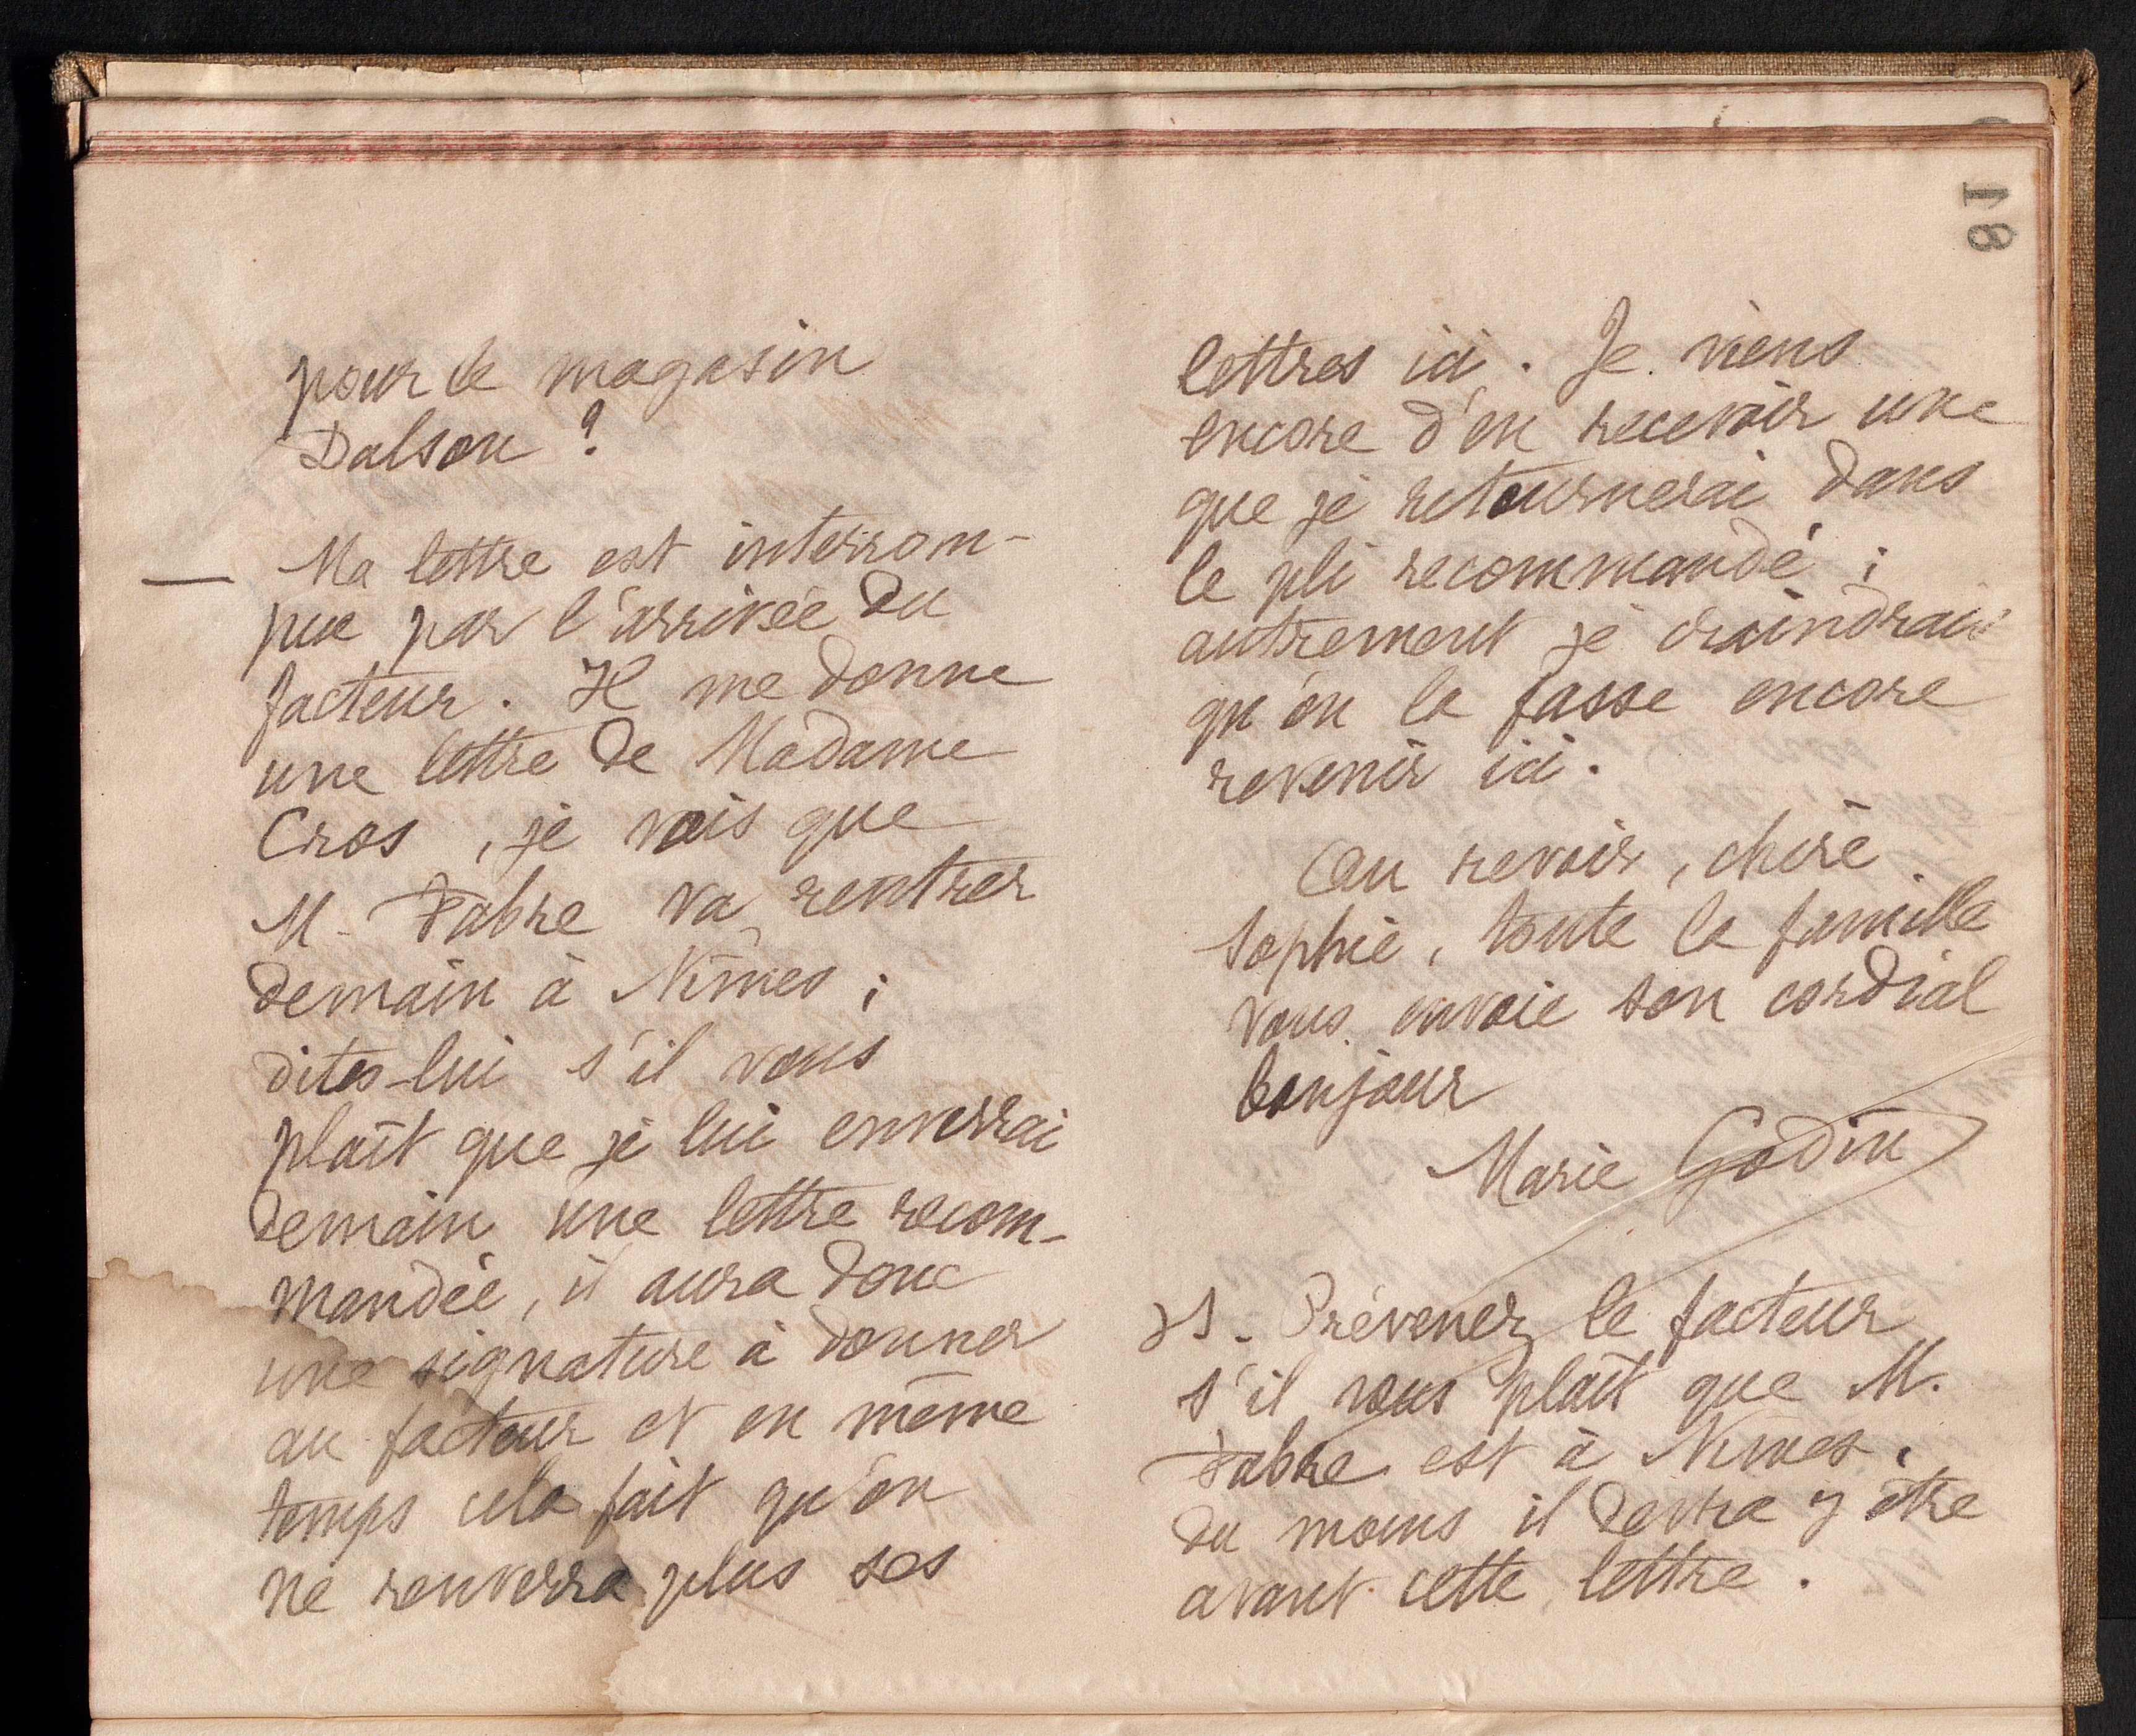 81
pour le magasin
Dalson ?
— Ma lettre est interrom-
pue par l'arrivée du
facteur. Il me donne
une lettre de Madame
Cros, je vois que
M. Fabre va rentrer
demain à Nîmes ;
dites-lui s'il vous
plaît que je lui enverrai
demain une lettre recom-
mandée, il aura donc
une signature à donner
au facteur et en même
temps cela fait qu'on
ne renverra plus ses
lettres ici. Je viens
encore d'en recevoir une
que je retournerai dans
le pli recommandé ;
autrement je craindrais
qu'on la fasse encore
revenir ici.
Au revoir, chère
Sophie, toute la famille
vous envoie son cordial
bonjour
Marie Godin
PS. Prévenez le facteur
s'il vous plaît que M.
Fabre est à Nîmes,
du moins il devra y être
avant cette lettre.